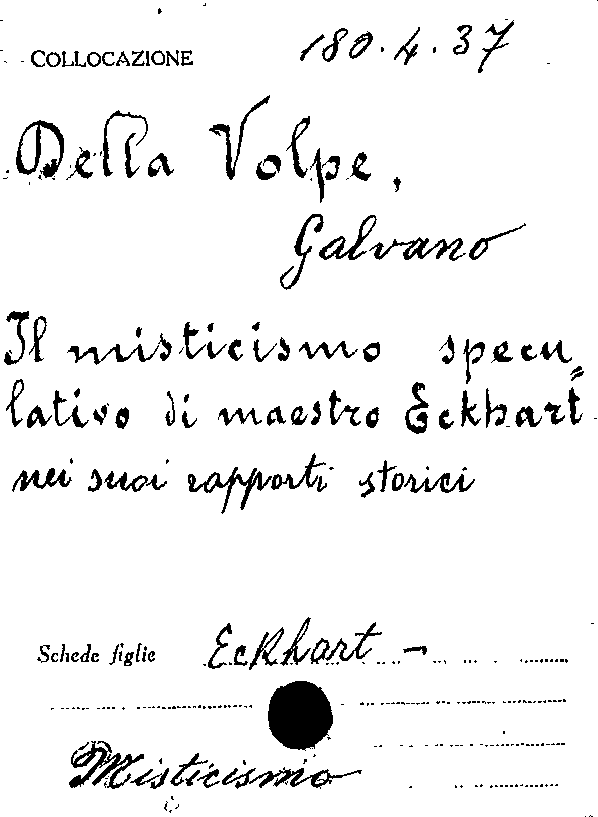 COLLOCAZIONE 180.4.37
Della Volpe,
Galvano
Il misticismo specu=
lativo di maestro Eckhart
nei suoi rapporti storici
Schede figlie Eckhart -
Misticismo